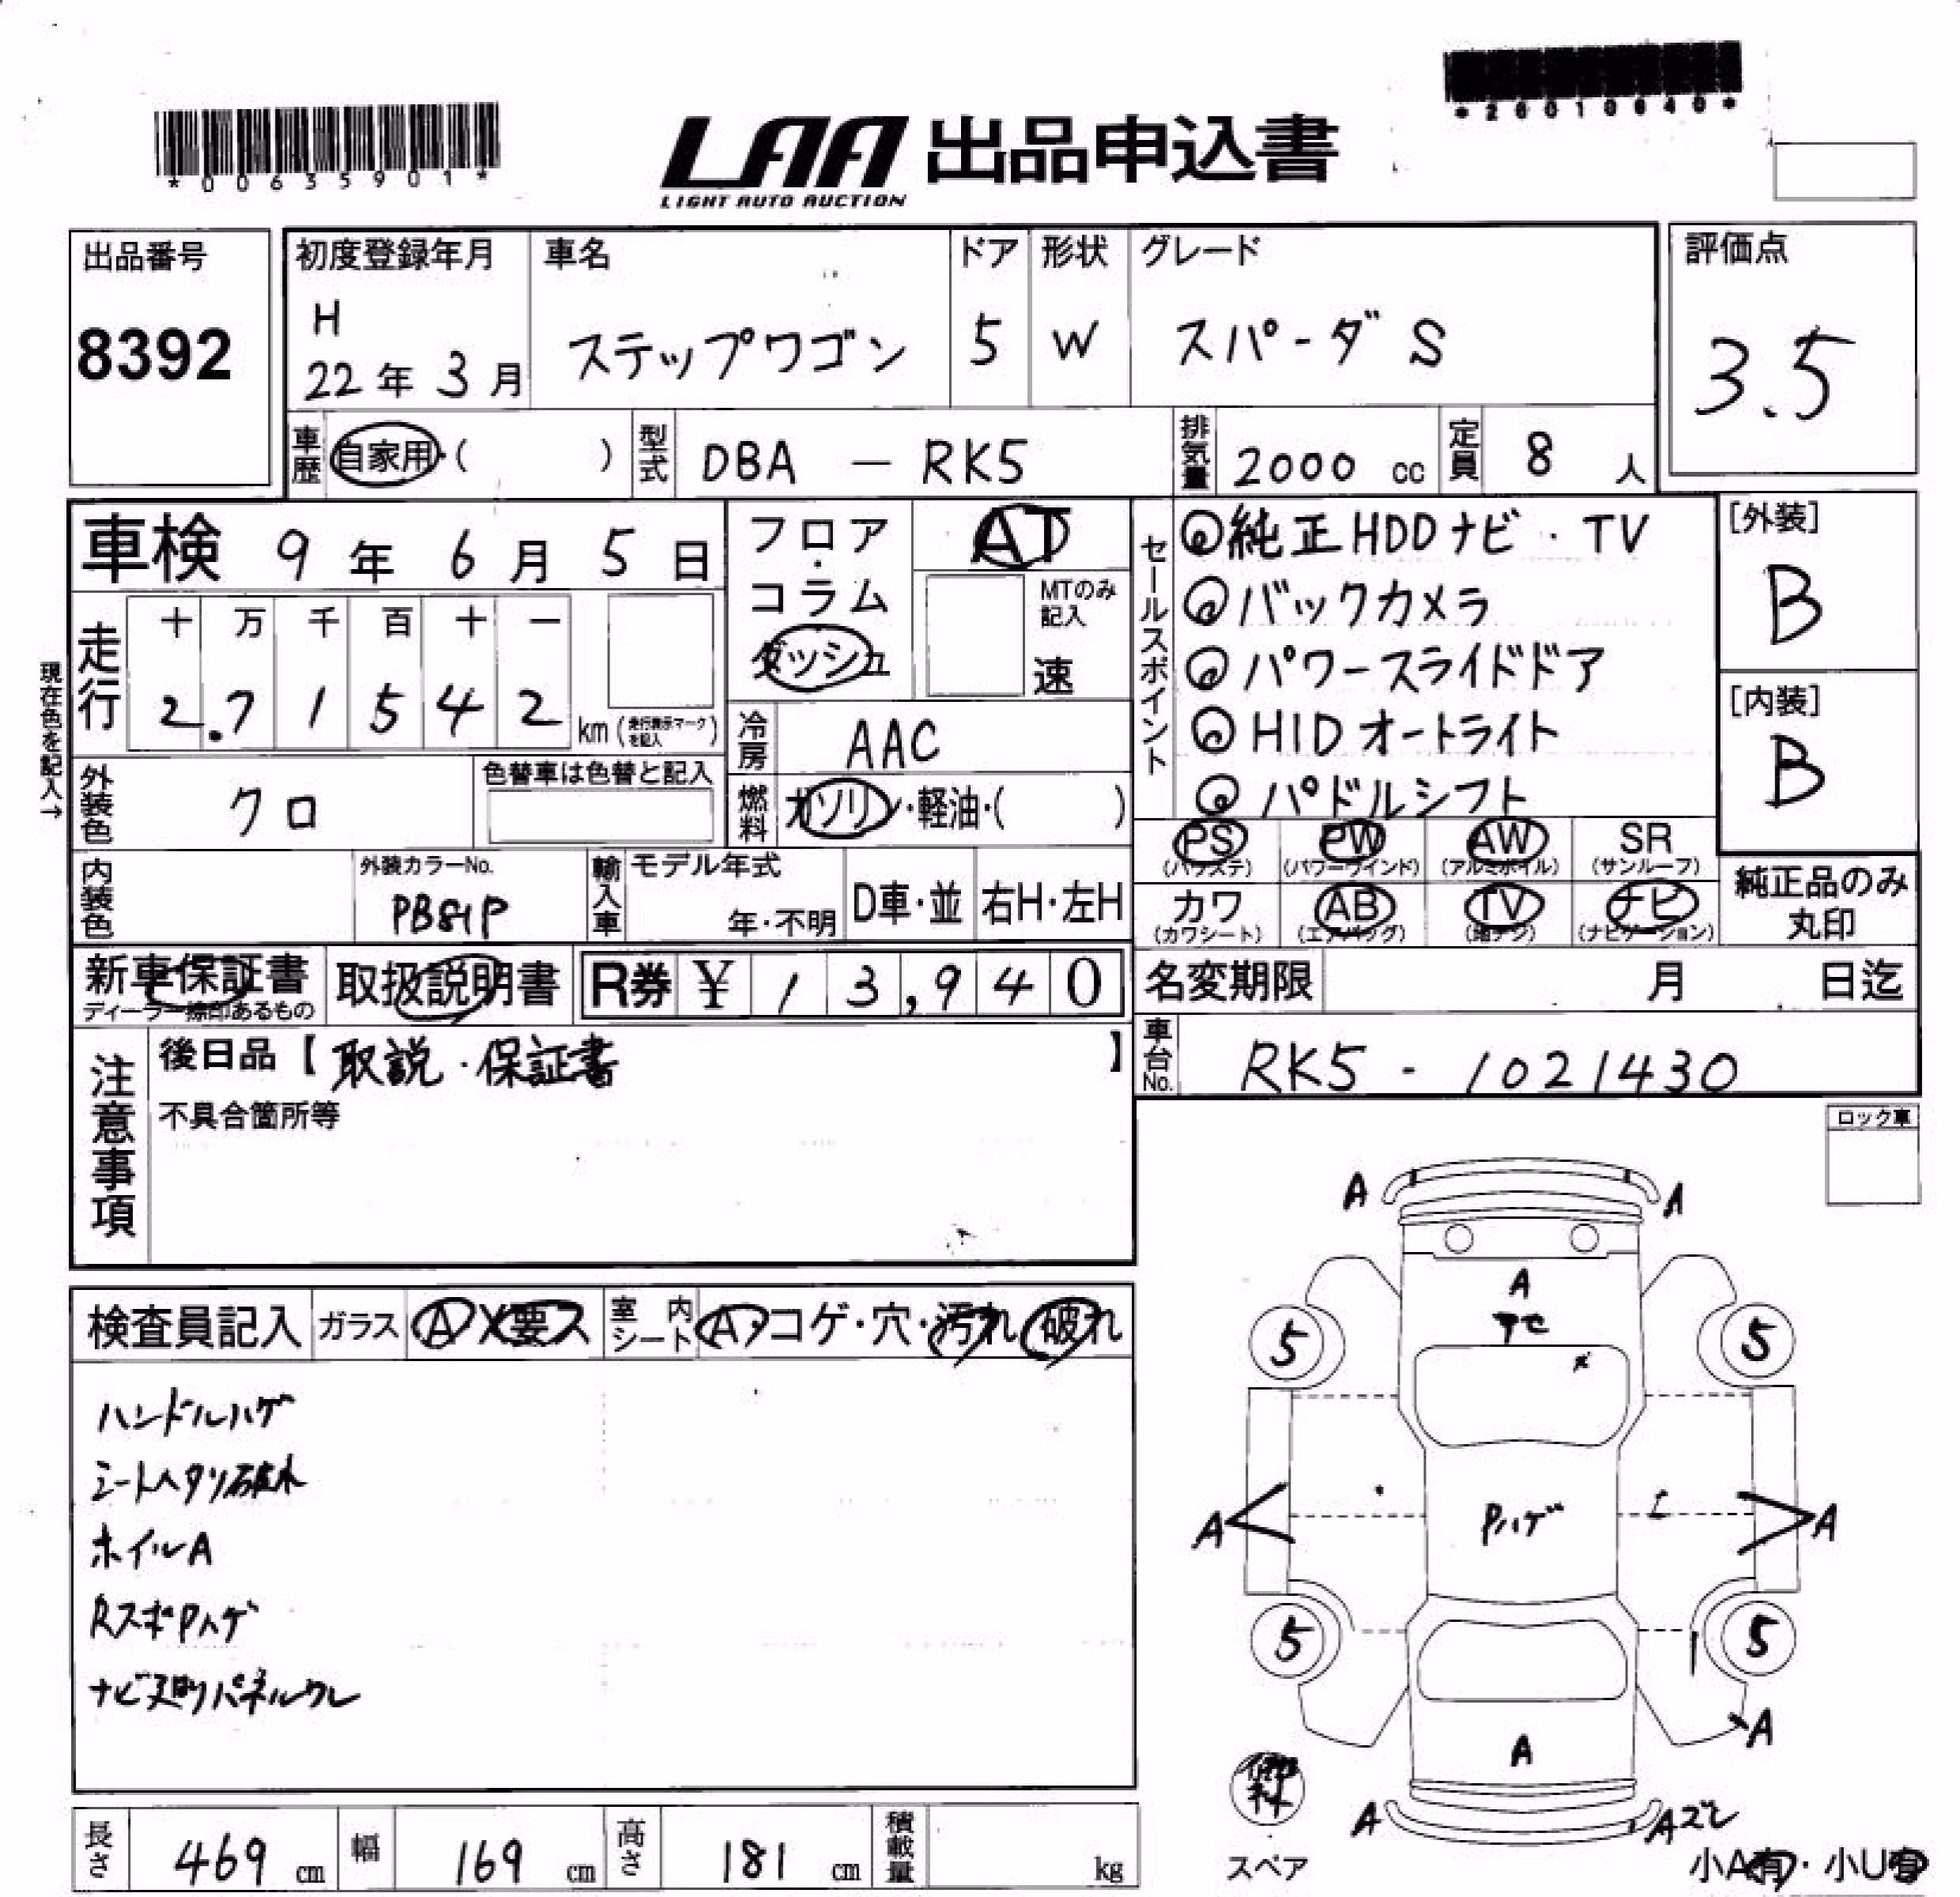 *00635901*
LAA 出品申込書
LIGHT AUTO AUCTION
*20010640*
出品番号
8392
初度登録年月
H
22年3月
車名
ステップワゴン
ドア
5
形状
W
グレード
スパーダ S
評価点
3.5
車歴 自家用・( )
型式 DBA - RK5
排気量 2000 cc
定員 8 人
車検 9年6月5日
フロア・コラム
ダッシュ
AT
MTのみ記入
速
現在色を記入→
走行
十 万 千 百 十 一
2.7 1 5 4 2 km (走行表示マークを記入)
冷房 AAC
燃料 ガソリン・軽油・( )
外装色 クロ
色替車は色替と記入
内装色
外装カラーNo.
PB81P
輸入車
モデル年式
年・不明
D車・並
右H・左H
セールスポイント
純正HDDナビ・TV
バックカメラ
パワースライドドア
HIDオートライト
パドルシフト
[外装]
B
[内装]
B
PS (パワステ)
PW (パワーウインド)
AW (アルミホイル)
SR (サンルーフ)
カワ (カワシート)
AB (エアバッグ)
TV (地デジ)
ナビ (ナビゲーション)
純正品のみ丸印
新車保証書
ディーラー捺印あるもの
取扱説明書
R券 ¥ 13,940
名変期限 月 日迄
車台No. RK5 - 1021430
注意事項
後日品【取説・保証書】
不具合箇所等
ロック車
検査員記入
ガラス A X 要ス
室内シート A・コゲ・穴・汚れ 破れ
ハンドルハゲ
シートヘタリ破れ
ホイルA
RスポPハゲ
ナビ廻りパネルワレ
A A
A
5 5
A Pハゲ A
5 5
A
A
A Aズレ
スペア
小A有・小U有
長さ 469 cm
幅 169 cm
高さ 181 cm
積載量 kg